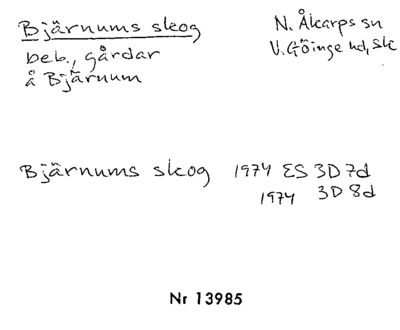 Bjärnums skog
beb., gårdar
å Bjärnum
N. Åkarps sn
V. Göinge hd, Sk
Bjärnums skog 1974 ES 3D 7d
1974 3D 8d
Nr 13985